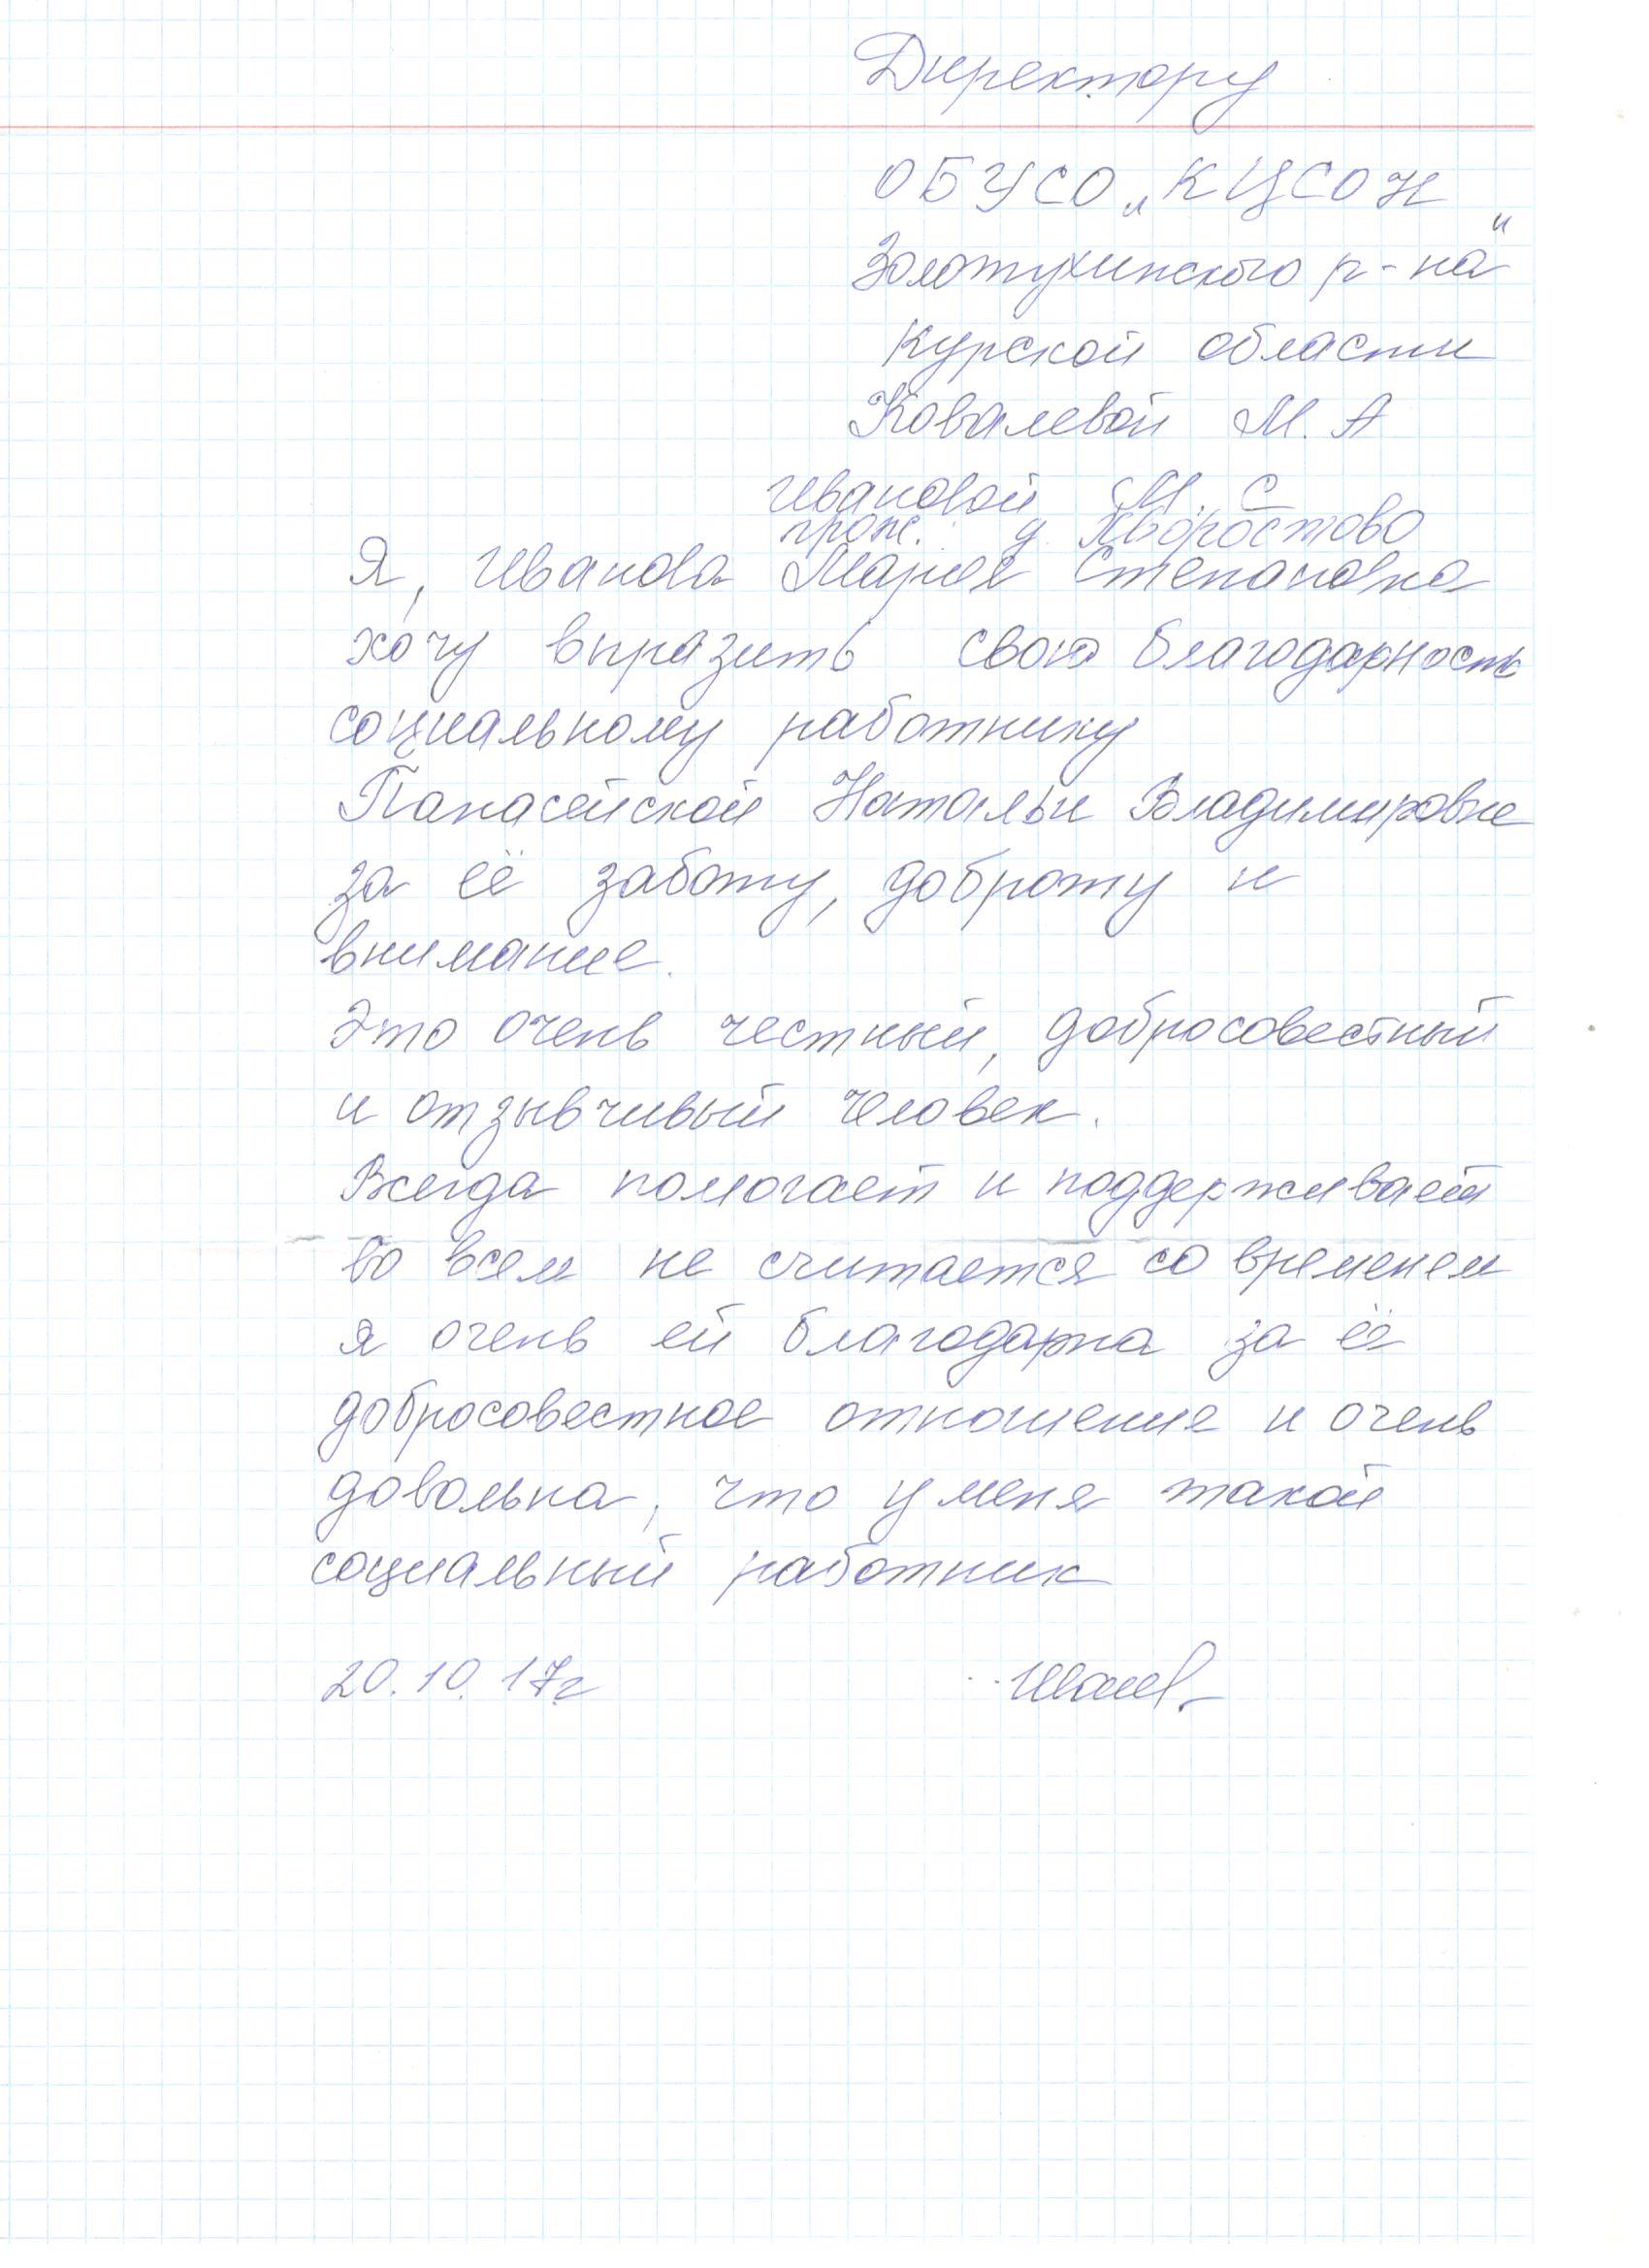 Директору
ОБУСО „КЦСОН
Золотухинского р-на"
Курской области
Ковалевой М. А
Ивановой М. С
прож. д Хворостово
Я, Иванова Мария Степановна
хочу выразить свою благодарность
социальному работнику
Панасейской Натальи Владимировне
за её заботу, доброту и
внимание.
Это очень честный, добросовестный
и отзывчивый человек.
Всегда помогает и поддерживает
во всем не считается со временем
я очень ей благодарна за её
добросовестное отношение и очень
довольна, что у меня такой
социальный работник
20.10.17г